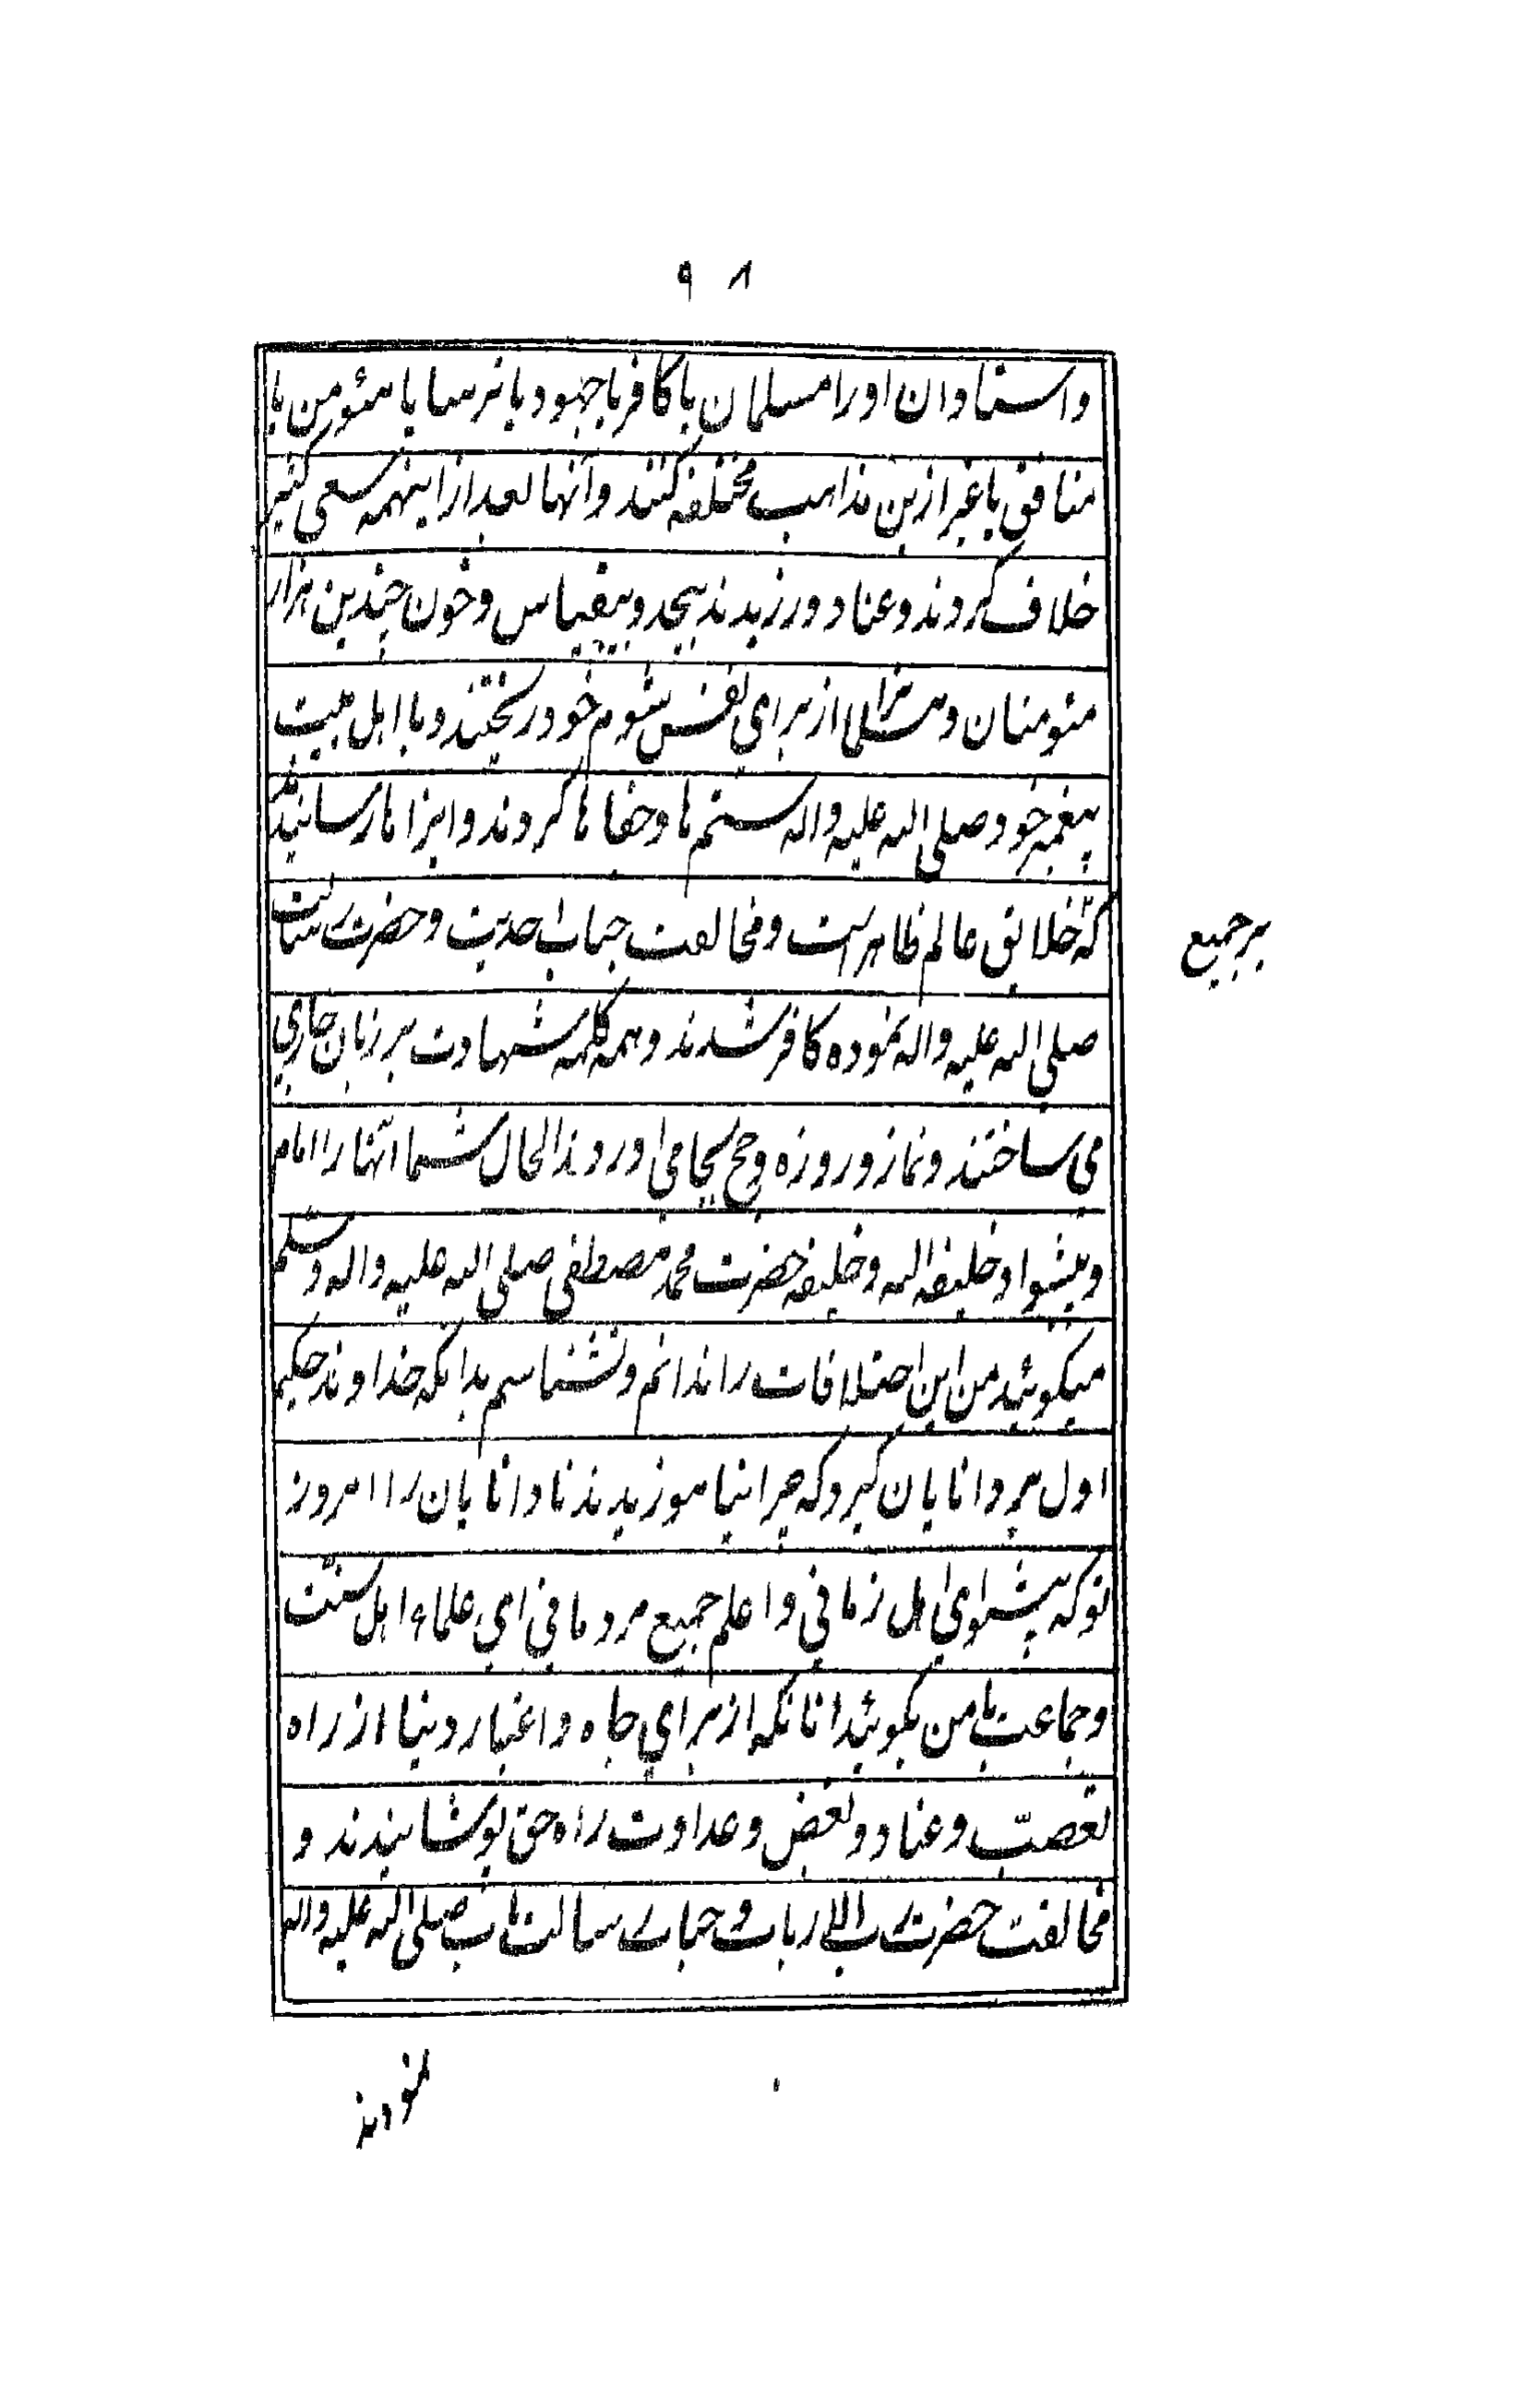 ۹۸
و استادان او را مسلمان یا کافر یا جهود یا ترسا یا مئومن یا
منافق یا غیر ازین مذاهب مختلفه کنند و آنها بعد از اینهمه سعی کثیر
خلاف کردند و عناد ورزیدند بیحد و بیقیاس و خون چندین هزار
مئومنان و از برای نفس شوم خود ریختند و با اهل بیت
پیغمبر خود صلی الله علیه و اله ستم ها و جفا ها کردند و ایزاها رسانیدند
که خلایق عالم ظاهر است و مخالفت جناب احدیت و حضرت رسالت
بر جمیع
صلی الله علیه و اله نموده کافر شدند و همه کلمه شهادت بر زبان جاری
می ساختند و نماز و روزه و حج بجا می اوردند الحال شما آنها را امام
و پیشوا و خلیفه الله و خلیفه حضرت محمد مصطفی صلی الله علیه و اله و سلم
میگوئید من این اختلافات را ندانم و نشناسم بدانکه خداوند حکیم
اول بر دانایان گیرد که چرا نیاموزیدند نادانایان را امروز
تو که پیشوای اهل زمانی و اعلم جمیع مردمانی ای علماء اهل سنت
و جماعت بامن بگوئید انانکه از برای جاه و اعتبار دنیا از راه
تعصب و عناد و بغض و عداوت راه حق پوشانیدند و
مخالفت حضرت رب الارباب و جناب رسالت ماب صلی الله علیه و اله
نمودند